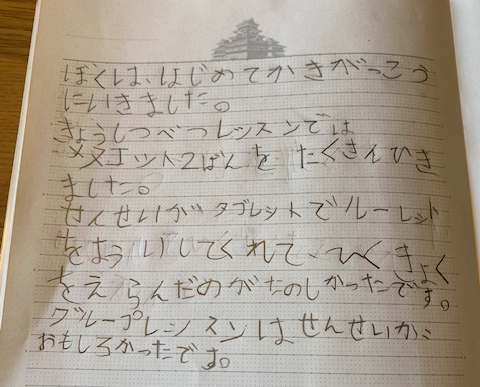 ぼくは、はじめてかきがっこう
にいきました。
きょうしつべつレッスンでは
メヌエット2ばんをたくさんひき
ました。
せんせいがタブレットでルーレット
をよういしてくれて、ひくきょく
をえらんだのがたのしかったです。
グループレッスンはせんせいが
おもしろかったです。